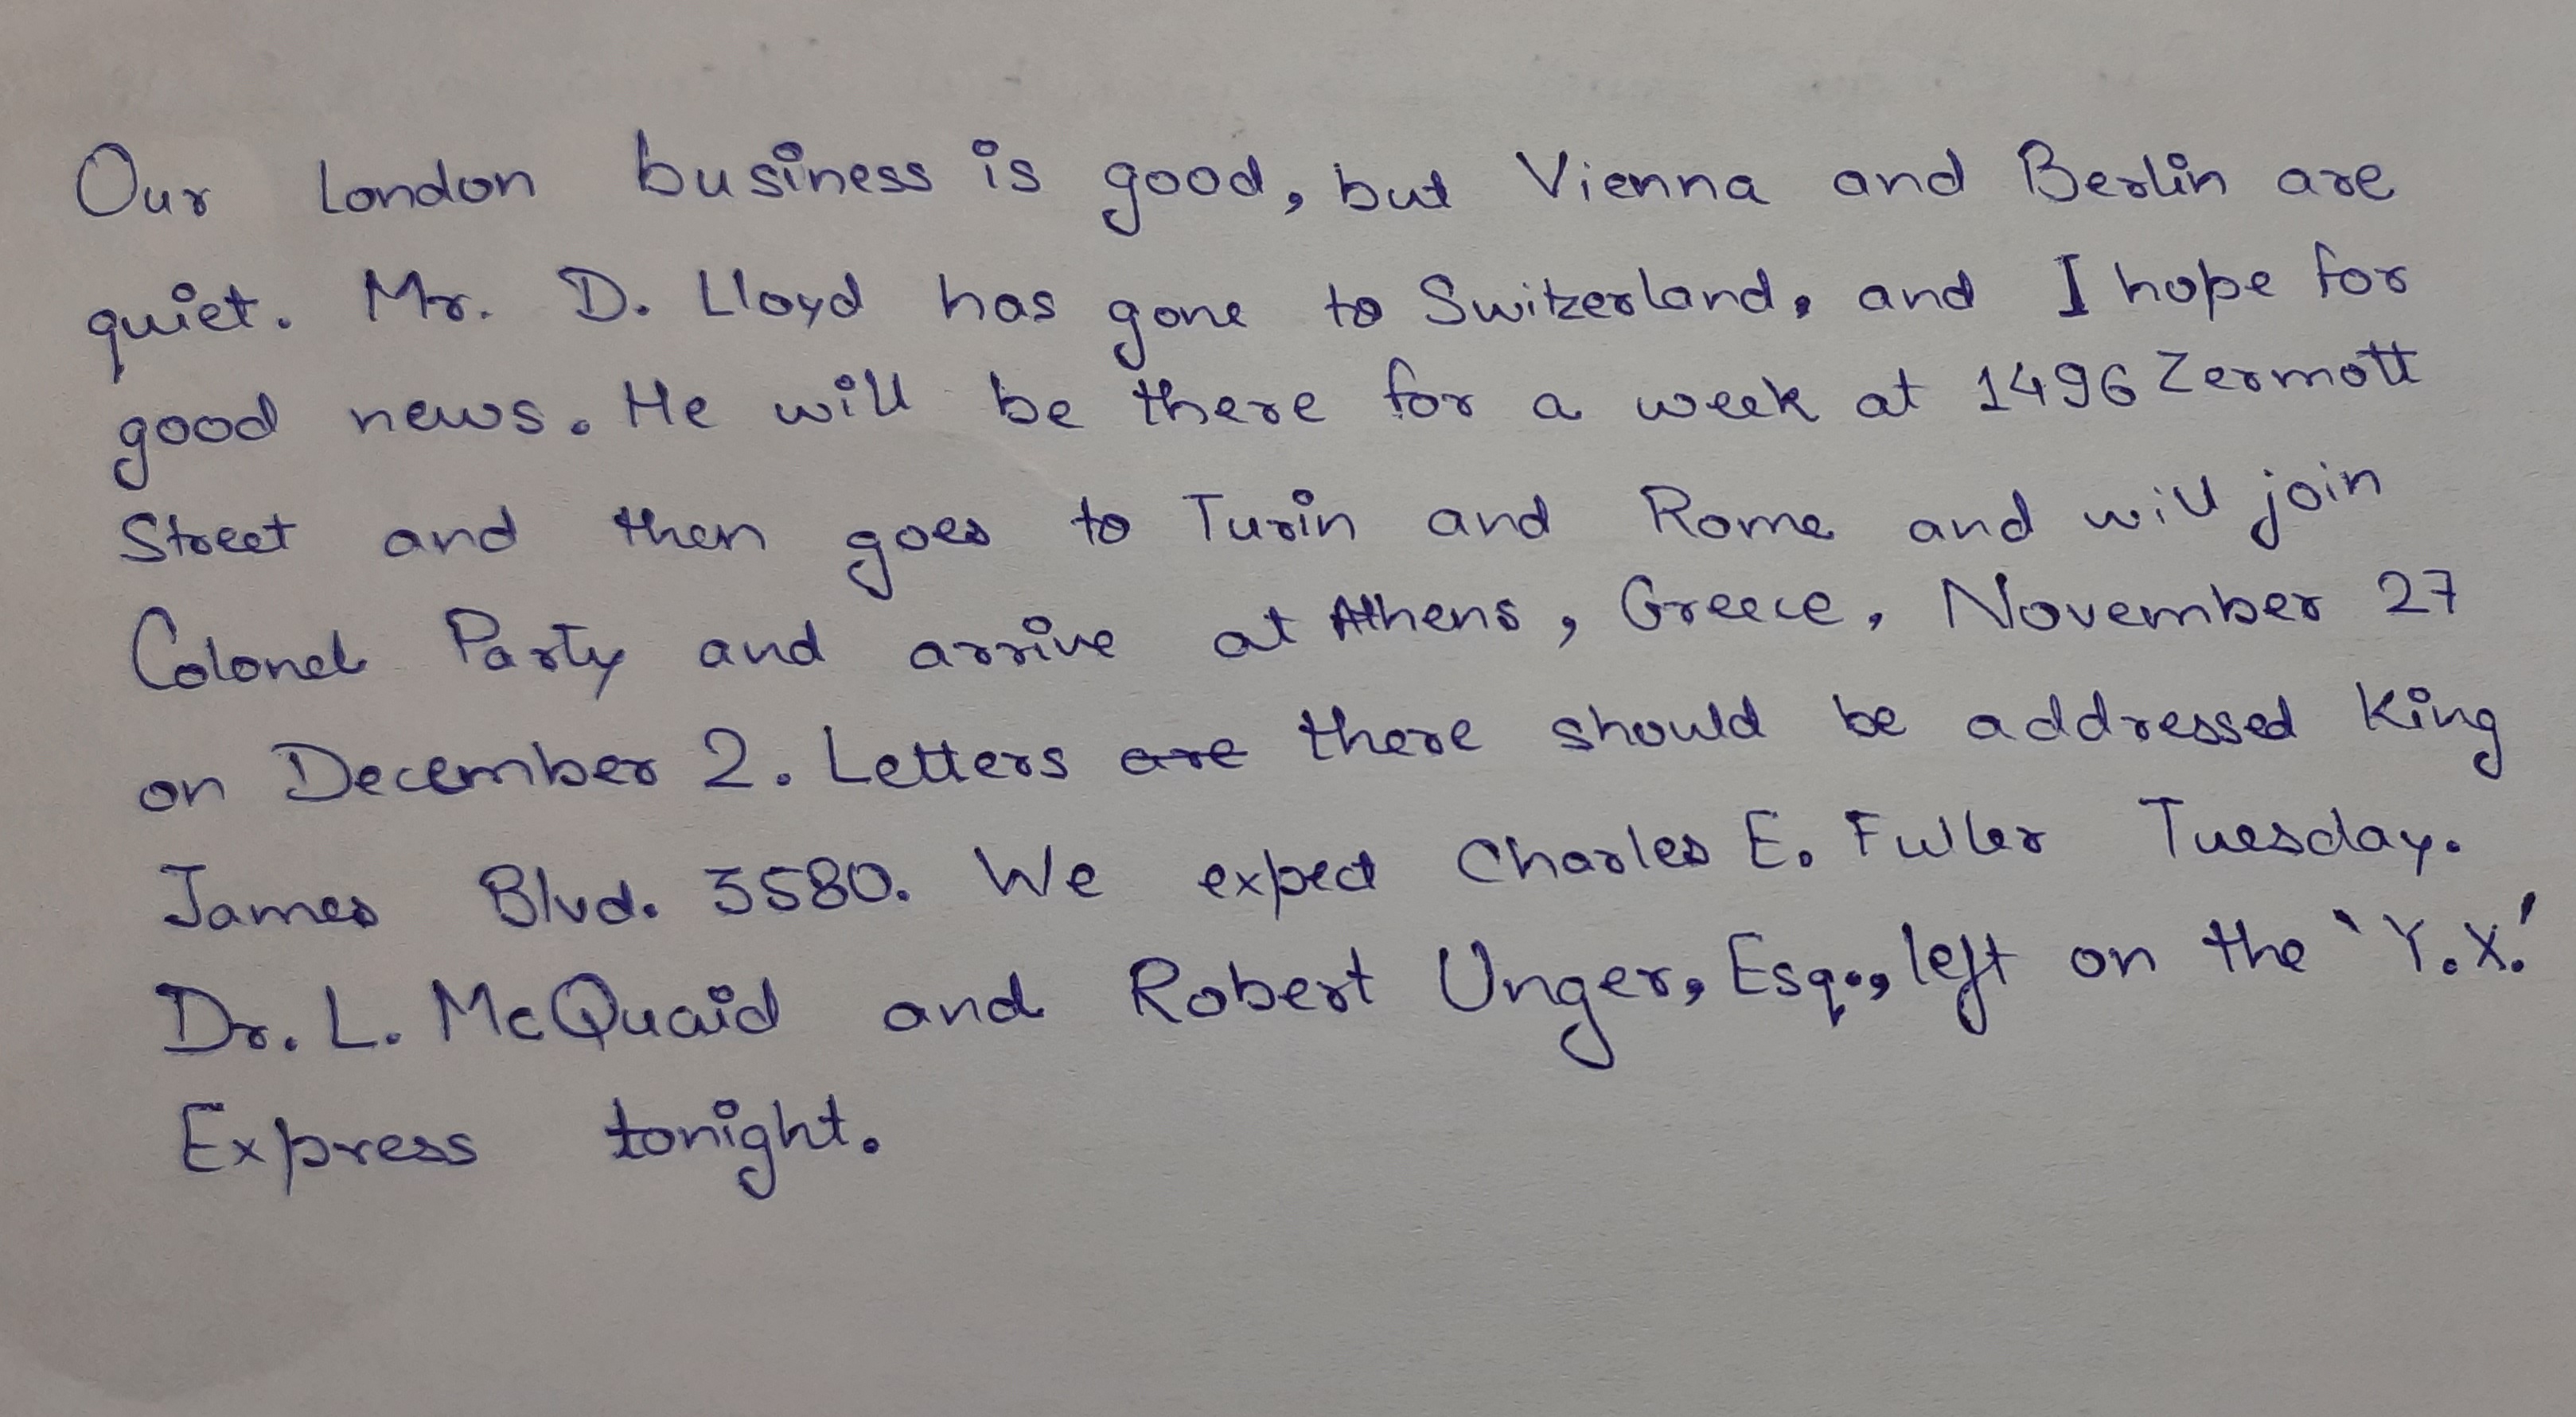 Our London business is good, but Vienna and Berlin are
quiet. Mr. D. Lloyd has gone to Switzerland, and I hope for
good news. He will be there for a week at 1496 Zermott
Street and then goes to Turin and Rome and will join
Colonel Party and arrive at Athens, Greece, November 27
on December 2. Letters are there should be addressed King
James Blvd. 3580. We expect Charles E. Fuller Tuesday.
Dr. L. McQuaid and Robert Unger, Esq., left on the 'Y.X.'
Express tonight.